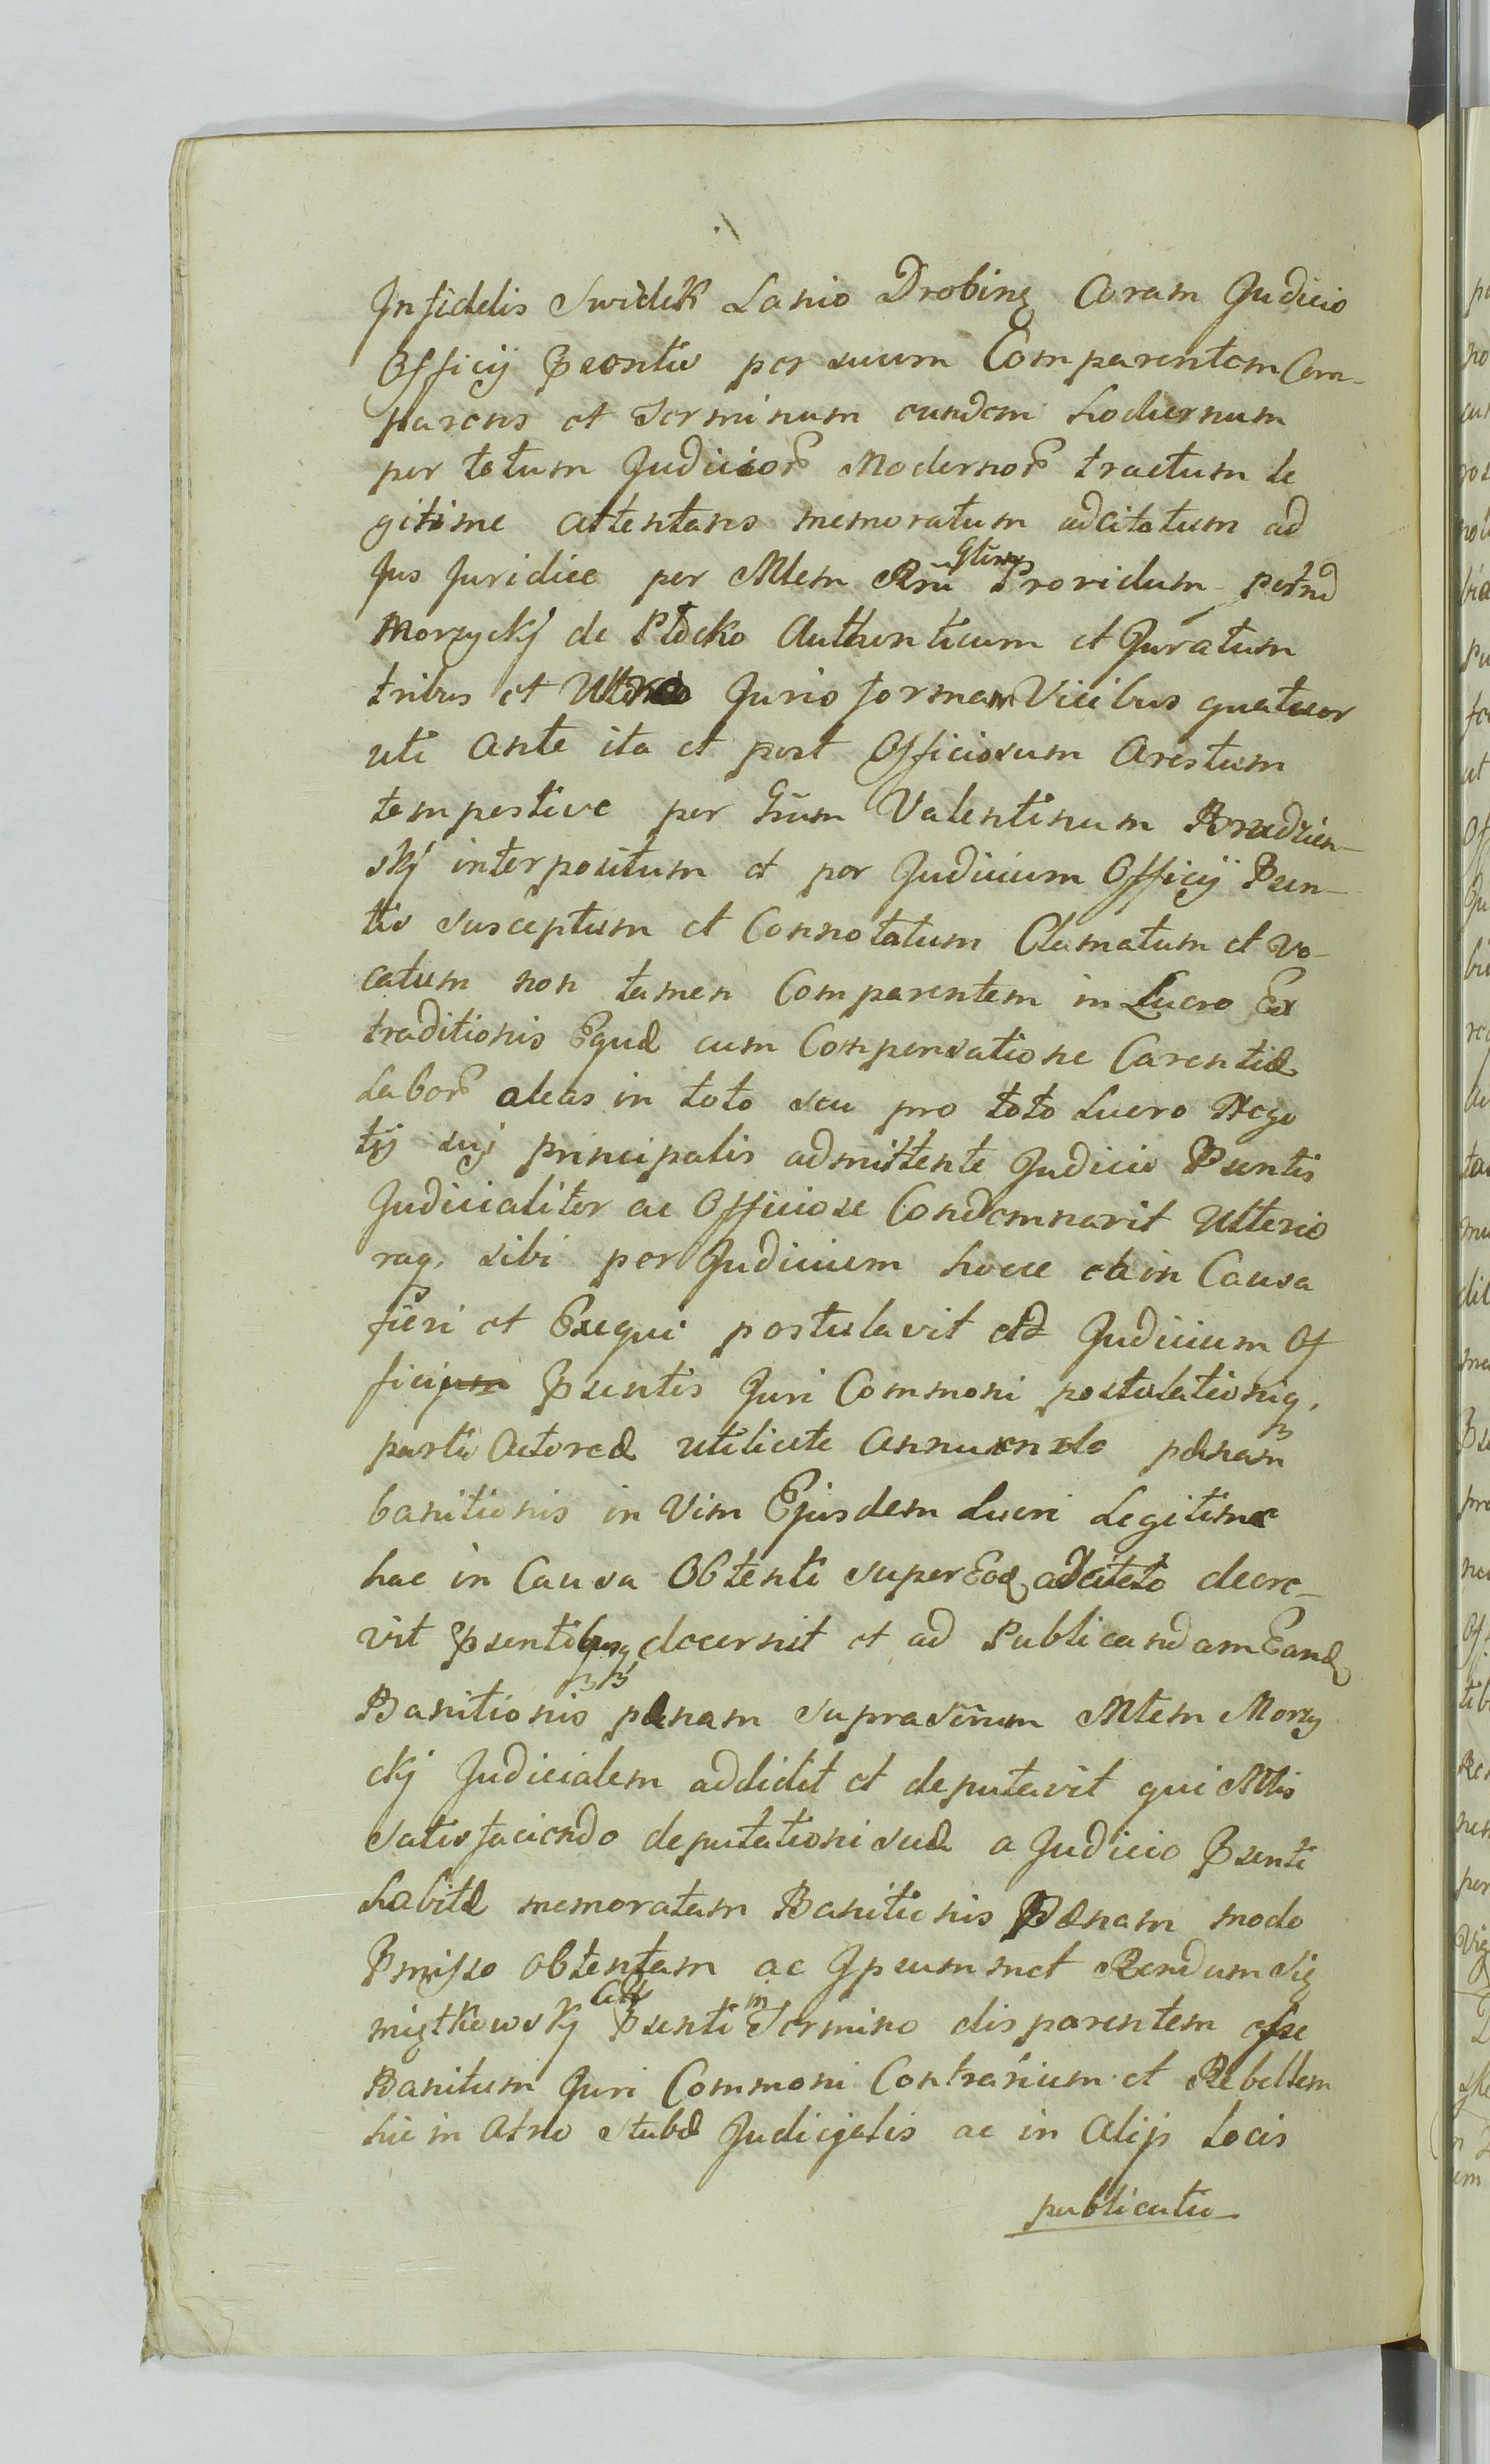 Infidelis Swidek Lanio Drobinę Coram Judicio
Officij Pseontis per suum Comparentem Com-
parens et Terminum eundem hodiernum
per totum Judicior Modernor tractum le
gitime attentans memoratum adcitatum ad
Jus Juridice per Mlem Rni Providum
Morzyckj de Płocko Authenticum et Juratum
tribus et Juris forman Vicibus quatuor
uti Ante ita et post Officiosum Arestum
tempestive per Gnum Valentinum Brudzien-
skj interpositum et per Judicium Officij Psen-
tis susceptum et Connotatum Clamatum et vo-
catum non tamen Comparentem in Lucro Ex
traditionis Equæ cum Compensatione Carentiæ
Labor aleas in toto seu pro toto Lucro Nego
tij suj principalis admittente Judicio Psentis
Judicialiter ac Officiose Condemnavit Ulterio
raq, sibi per Judicium hocce in Causa
fieri et Exequi postulavit Judicium Of
ficij Psentis Juri Commoni postulationiq,
partis Actoreæ utilicate Annuendo pænam
banitionis in Vim Ejusdem Lucri Legitime
hac in Causa Obtenti super adcitato decre-
vit psentibusq, decernit et ad Publicandam Eand
Banitionis pænam suprascrium Mlem Morzy
ckj Judicialem addidit et deputavit qui Mlis
satisfaciendo deputationi suæ a Judicio Psenti
habitæ memoratam Banitionis Pænam modo
Pmisso obtentam ac Ipsummet Rendum Sie
miątkowskj Psenti in Termino disparentem esse
Banitum Juri Commoni Contrarium et Rebellem
hic in Atrio Stubæ Judicialis ac in Alijs Locis
publicatis